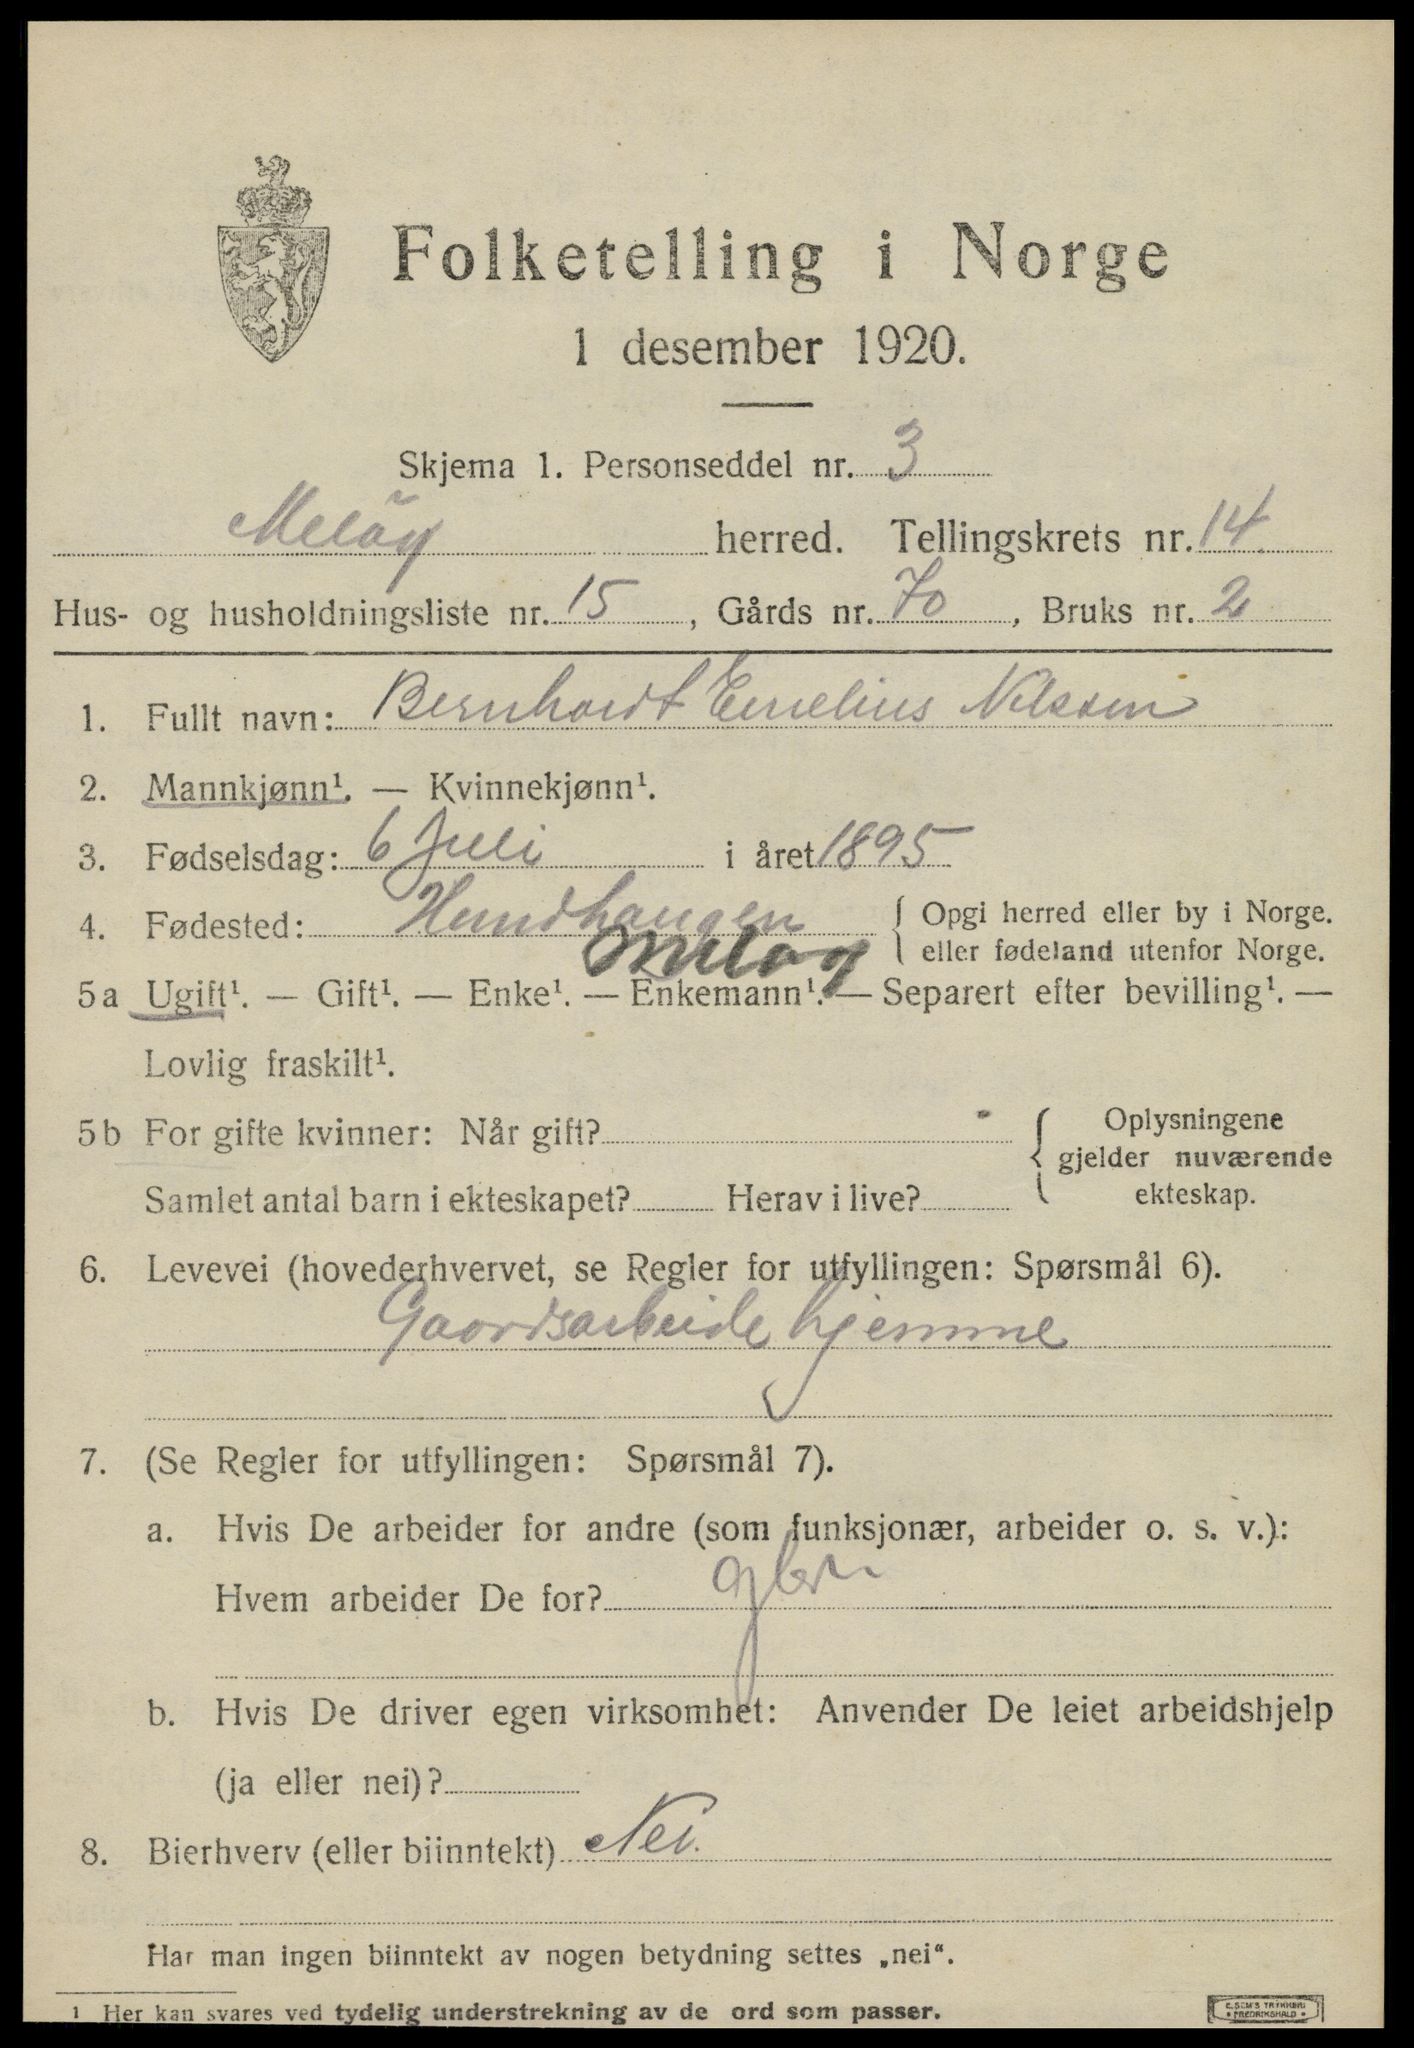 Folketelling i Norge
1 desember 1920.
Skjema 1. Personseddel nr. 3
Meløy herred. Tellingskrets nr. 14.
Hus- og husholdningsliste nr. 15, Gårds nr. 70, Bruks nr. 2
1. Fullt navn: Bernhardt Emelius Nilssen
2. Mannkjønn¹. — Kvinnekjønn¹.
3. Fødselsdag: 6 Juli i året 1895
4. Fødested: Hundhaugen { Opgi herred eller by i Norge.
Meløy eller fødeland utenfor Norge.
5a Ugift¹. — Gift¹. — Enke¹. — Enkemann¹. — Separert efter bevilling¹. —
Lovlig fraskilt¹.
5b For gifte kvinner: Når gift? { Oplysningene
gjelder nuværende
Samlet antal barn i ekteskapet? Herav i live? ekteskap.
6. Levevei (hovederhvervet, se Regler for utfyllingen: Spørsmål 6).
Gaardsarbeide hjemme
7. (Se Regler for utfyllingen: Spørsmål 7).
a. Hvis De arbeider for andre (som funksjonær, arbeider o. s. v.):
Hvem arbeider De for?
b. Hvis De driver egen virksomhet: Anvender De leiet arbeidshjelp
(ja eller nei)?
8. Bierhverv (eller biinntekt) Nei.
Har man ingen biinntekt av nogen betydning settes „nei“.
¹ Her kan svares ved tydelig understrekning av de ord som passer.
E. SEM'S TRYKKERI
• FREDRIKSHALD •